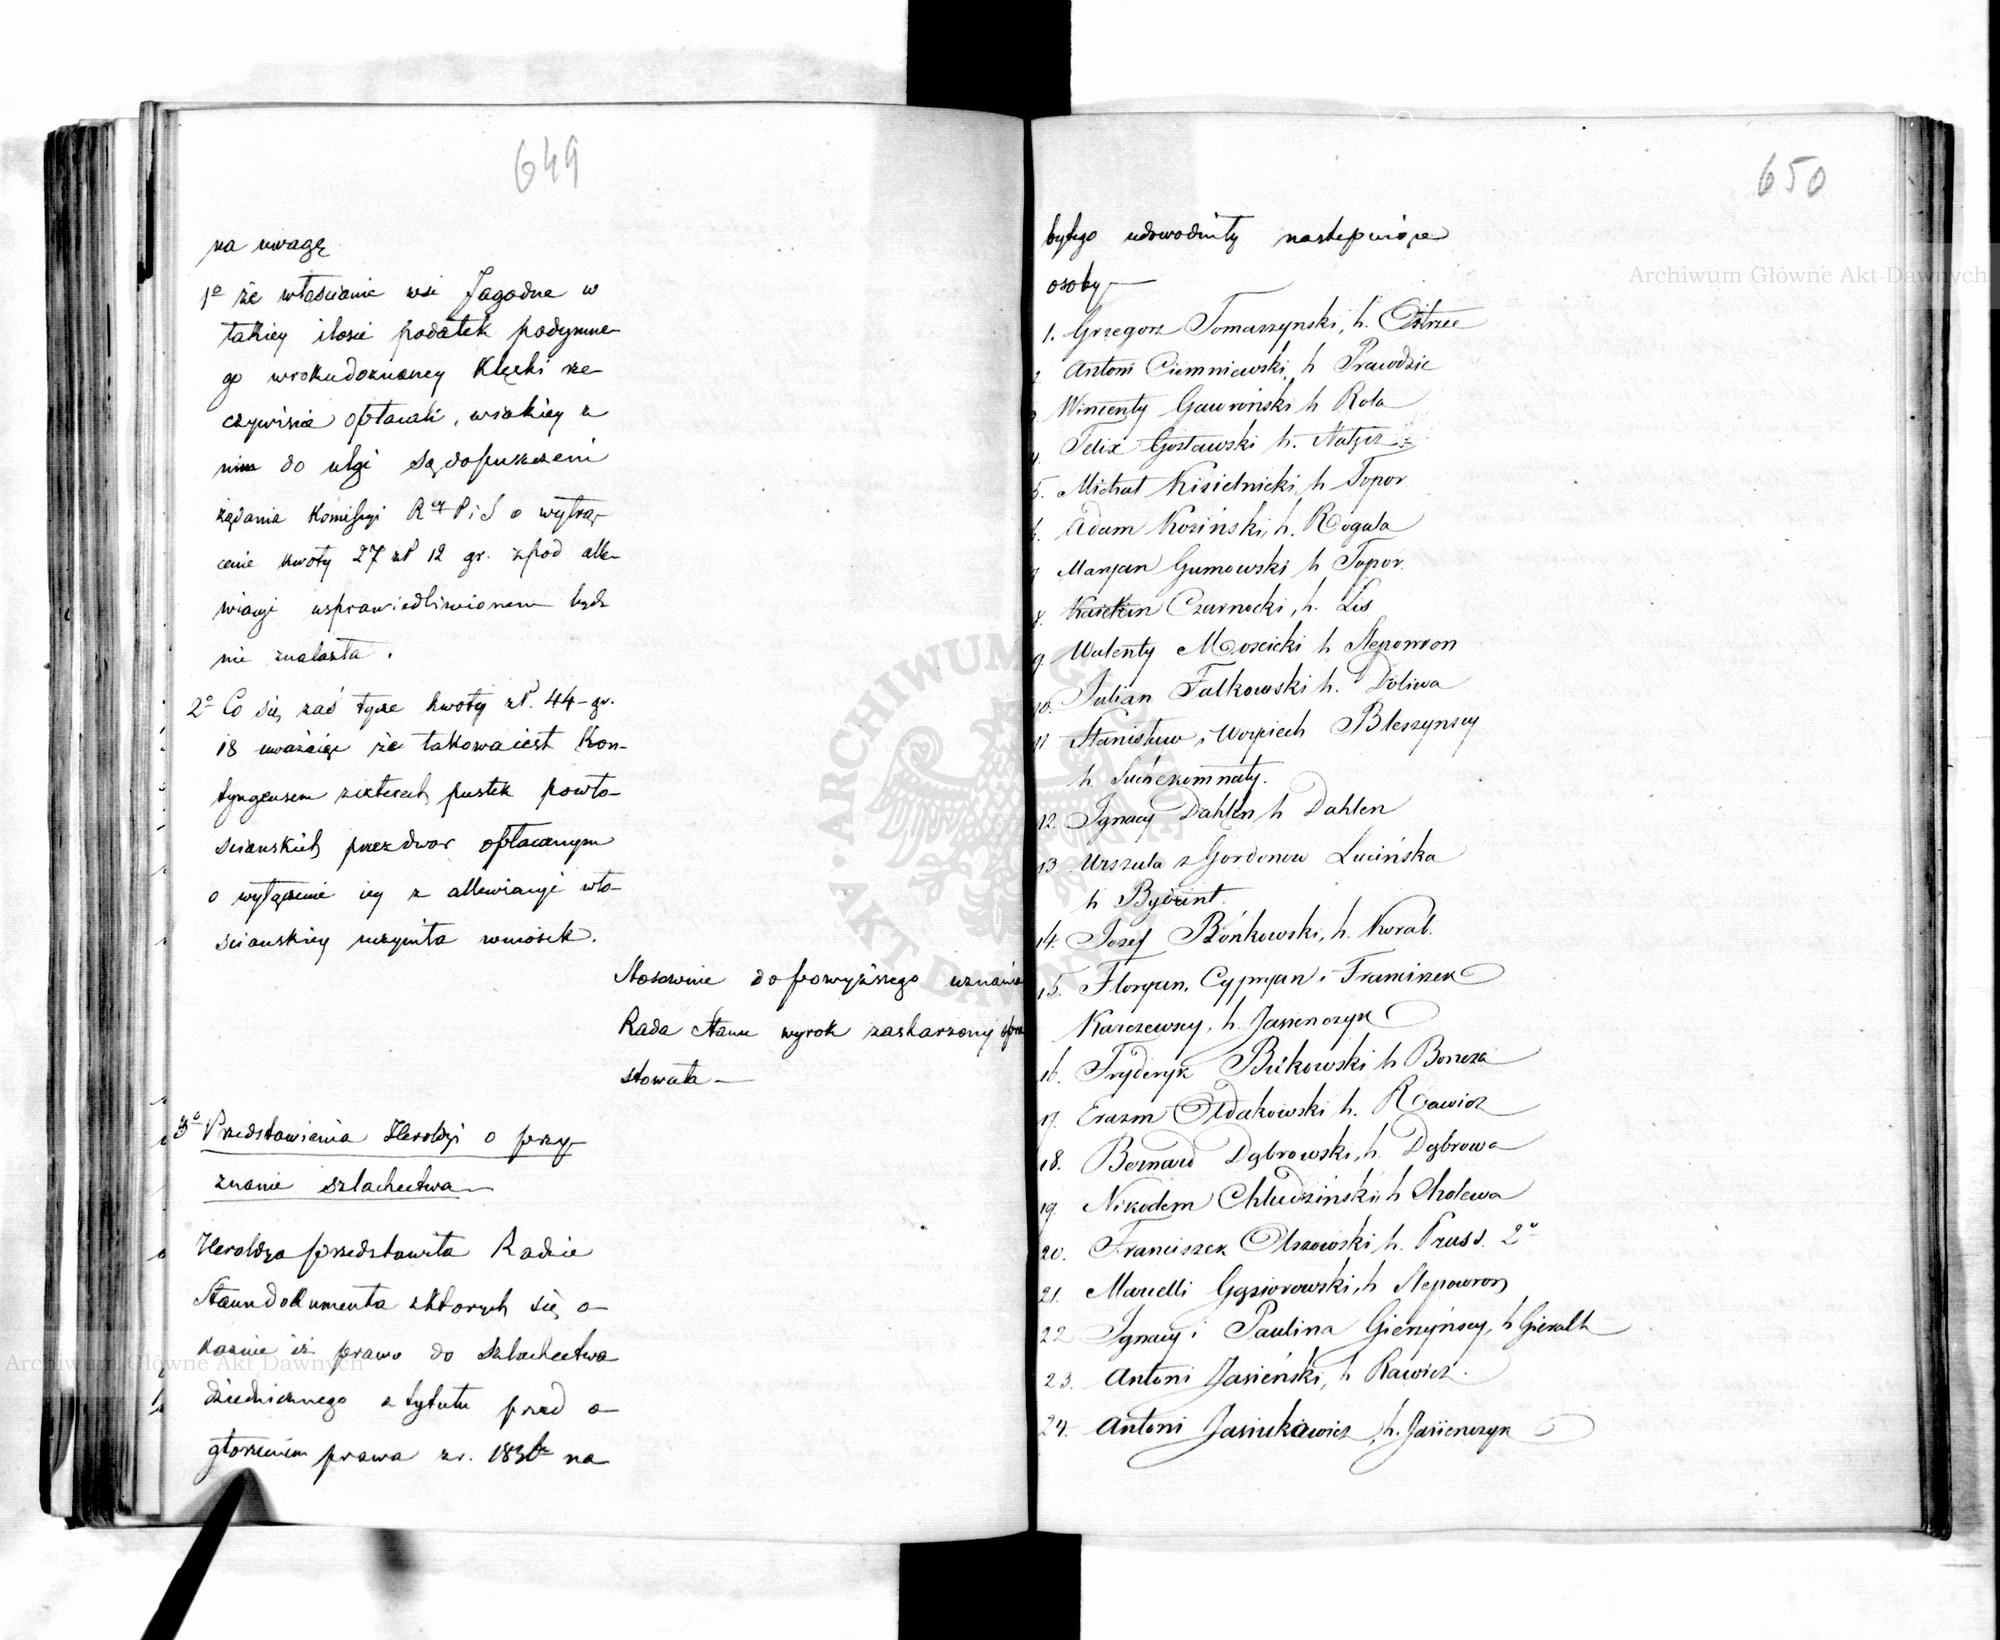 649
na uwagę
1º że włościanie wsi Jagodne w
takiey ilości podatek podymne-
go w roku doznaney Klęski rze-
czywiście opłacali, w iakiey z
nim do ulgi są dopuszczeni
żądanie Kommissyi P i S o wytrą-
cenie kwoty 27 zł 12 gr. z pod alle-
wiacyi usprawiedliwionem bydź
nie znalazła.
2º Co się zaś tycze kwoty zł. 44 - gr.
18 uważaiąc że takowa iest Kon-
tyngensem z czterech pustek powło-
sciańskich przez dwór opłacanym
o wyłączenie iey z allewiacyi wło-
sciańskiey uczyniła wniosek.
Stosownie do powyższego uznania
Rada Stanu wyrok zaskarżony
stowała —
3º Przedstawienia Heroldyi o przy-
znanie szlachectwa —
Heroldya przedstawiła Radzie
Stanu dokumenta z których się o-
kazuie iż prawo do szlachectwa
dziedzicznego z tytułu przed o-
głoszeniem prawa z r. 1836 na
650
bytego udowodniły następuiące
osoby —
1. Grzegorz Tomaszynski, h. Ostrzee
2. Antoni Ciemniewski, h Prawdzic
3. Wincenty Gawroński h Rola
4. Felix Gosławski h. Nałęcz
5. Michał Kisielnicki h Topor
6. Adam Kosiński, h. Rogala
7. Maryan Gumowski h Topor.
8. Czarnocki, h. Lis
9. Walenty Moscicki h Slepowron
10. Julian Falkowski h. Doliwa
11 Stanisław i Woyciech Bleszynscy
h. Suchekomnaty.
12. Ignacy Dahlen h Dahlen
13 Urszula z Gordonow Lucińska
h Bydzint.
14. Jozef Bońkowski, h. Korab.
15. Floryan, Cypryan i Franciszek
Karczewscy, h. Jasienczyk
16. Fryderyk Bukowski h Boncza
17. Erazm Ołdakowski h. Rawicz
18. Bernard Dąbrowski, h. Dąbrowa
19. Nikodem Chludziński, h Cholewa
20. Franciszek Olszowski h. Pruss 2º
21. Marcelli Gąsiorowski, h Slepowron
22 Ignacy i Paulina Gierzyńscy, h Gieralt
23. Antoni Jasieński, h Rawicz.
24. Antoni Jasiukiewicz, h. Jasienczyk
Archiwum Główne Akt Dawnych
Archiwum Główne Akt Dawnych